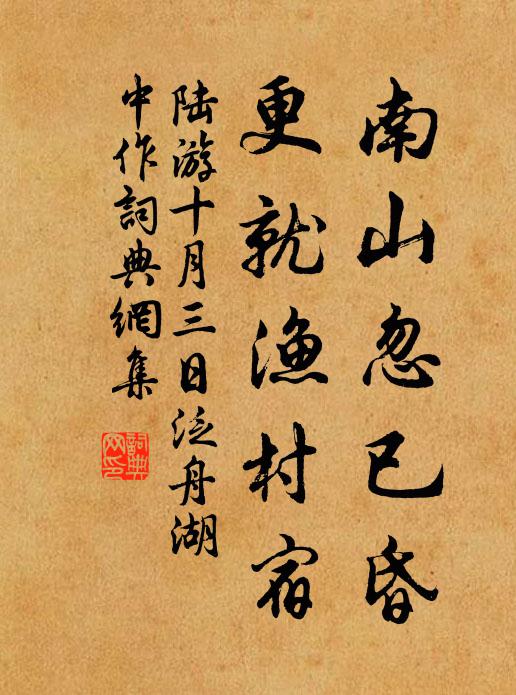 南山忽已昏
更就漁村宿
陆游十月三日泛舟湖
中作詞典網集
詞典
网印